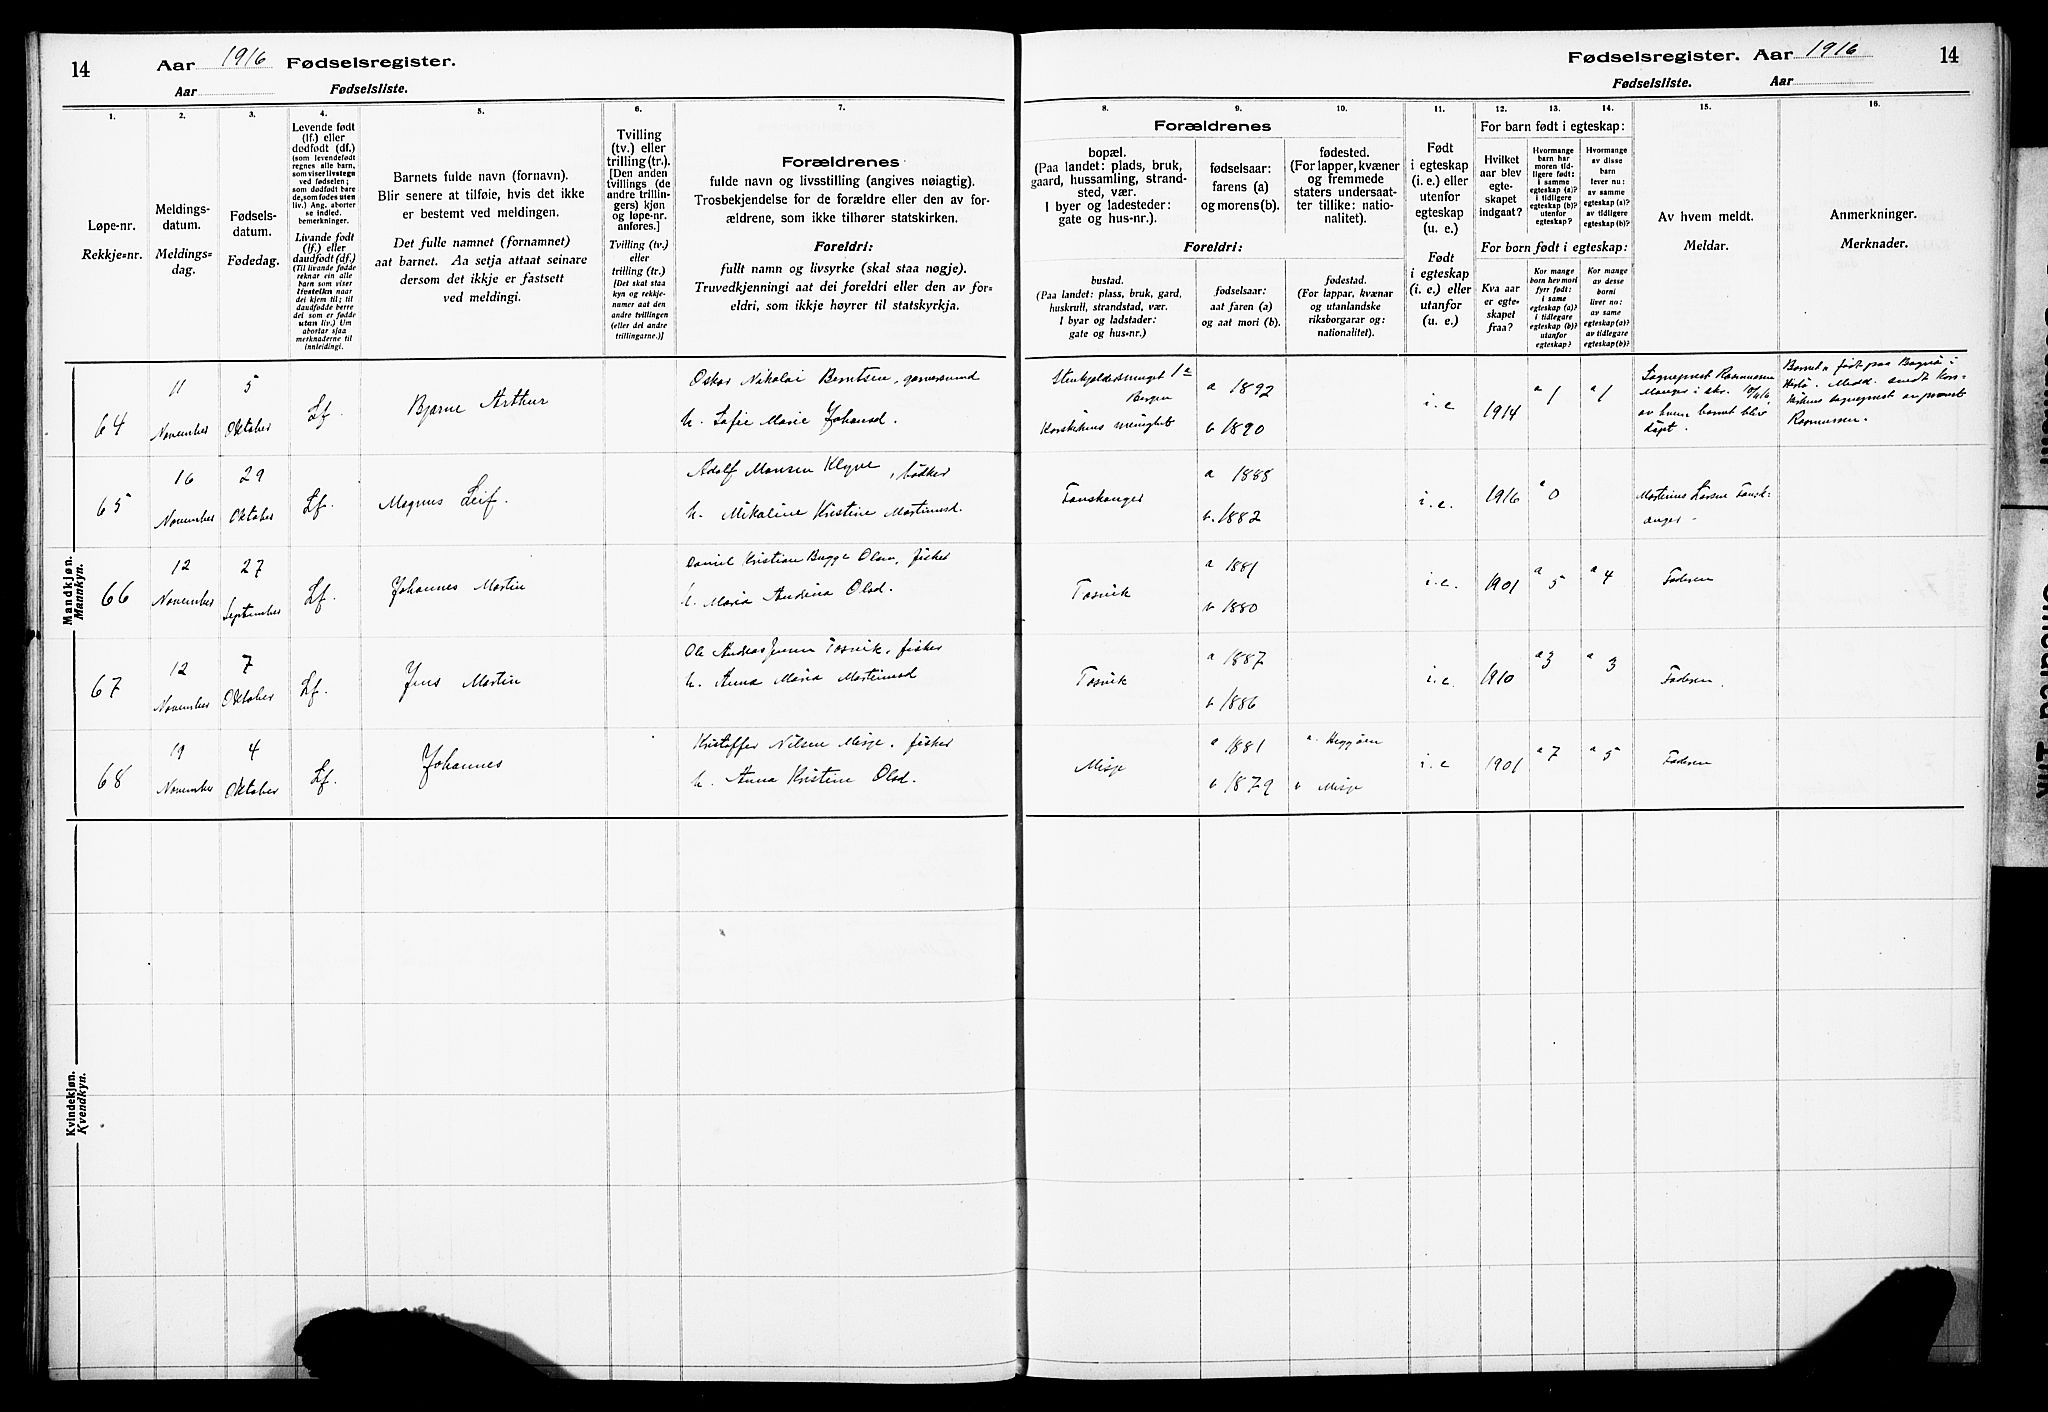 14
Aar 1916 Fødselsregister.
Aar Fødselsliste.
Fødselsregister. Aar 1916
14
Fødselsliste. Aar
1.
Løpe-nr.
Rekkje=nr.
2.
Meldings-
datum.
Meldings=
dag.
3.
Fødsels-
datum.
Fødedag.
4.
Levende født
(lf.) eller
dødfødt (df.)
(som levendefødt
regnes alle barn,
som viser livstegn
ved fødselen;
som dødfødt bare
de, som fødes uten
liv.) Ang. aborter
se indled.
bemerkninger.
Livande født
(lf.) eller
daudfødt (df.)
(Til livande fødde
reknar ein alle
barn som viser
livsteikn naar
dei kjem til; til
daudfødde berre
dei som er fødde
utan liv.) Um
abortar sjaa
merknaderne til
innleidingi.
5.
Barnets fulde navn (fornavn).
Blir senere at tilføie, hvis det ikke
er bestemt ved meldingen.
Det fulle namnet (fornamnet)
aat barnet. Aa setja attaat seinare
dersom det ikkje er fastsett
ved meldingi.
6.
Tvilling
(tv.) eller
trilling (tr.).
[Den anden
tvillings (de
andre trillin-
gers) kjøn
og løpe-nr.
anføres.]
Tvilling (tv.)
eller
trilling (tr.)
[Det skal staa
kyn og rekkje-
numer aat den
andre tvillingen
(eller dei andre
trillingarne.)]
7.
Forældrenes
fulde navn og livsstilling (angives nøiagtig).
Trosbekjendelse for de forældre eller den av for-
ældrene, som ikke tilhører statskirken.
Foreldri:
fullt namn og livsyrke (skal staa nøgje).
Truvedkjenningi aat dei foreldri eller den av for-
eldri, som ikkje høyrer til statskyrkja.
8. 9. 10.
Forældrenes
bopæl.
(Paa landet: plads, bruk,
gaard, hussamling, strand-
sted, vær.
I byer og ladesteder:
gate og hus-nr.).
fødselsaar:
farens (a)
og morens (b).
fødested.
(For lapper, kvæner
og fremmede
staters undersaat-
ter tillike: natio-
nalitet).
Foreldri:
bustad.
(Paa landet: plass, bruk, gard,
huskrull, strandstad, vær.
I byar og ladstader:
gate og hus=nr.)
fødselsaar:
aat faren (a)
og aat mori (b).
fødestad.
(For lappar, kvænar
og utanlandske
riksborgarar og:
nationalitet).
11.
Født
i egteskap
(i. e.) eller
utenfor
egteskap
(u. e.)
Født
i egteskap
(i. e.) eller
utanfor
(u. e.)
12. 13. 14.
For barn født i egteskap:
Hvilket
aar blev
egte-
skapet
indgaat?
Hvormange
barn har
moren tid-
ligere født:
i samme
egteskap (a)?
i tidligere
egteskap (b)?
utenfor
egteskap?
Hvormange
av disse
barn
lever nu:
av samme
egteskap (a)?
av tidligere
egteskap (b)?
For born født i egteskap:
Kva aar
er egte-
skapet
fraa?
Kor mange
born hev mori
fyrr født:
i same
egteskap (a)?
i tidlegare
egteskap (b)?
utanfor
egteskap?
Kor mange
av desse
borni
liver no:
av same
egteskap (a)?
av tidlegare
egteskap (b)?
15.
Av hvem meldt.
Meldar.
16.
Anmerkninger.
Merknader.
Mandkjøn.
Mannkyn.
64 11 November 5 Oktober Lf. Bjarne Arthur
Oskar Nikolai Berntsen,
h. Sofie Marie Johansd.
1a
Bergen
Korskirkens menighet
a 1892
b 1890
i. e 1914 a 1 a 1
Sogneprest Rasmussen
Manger i skr.
av hvem barnet blev
døpt.
født paa
Herlø. Medd. sendt Kors-
kirkens sogneprest av
Rasmussen.
65 16 November 29 Oktober Lf. Magnus Leif.
Adolf Monsen Klyve, bødker
h. Mikaline Kristine Martinusd.
Fonskanger
a 1888
b. 1882
i. e. 1916 a 0
Martinus Larsen Fonsk-
anger
66 12 November 27 September Lf. Johannes Martin
Daniel Kristian Bugge Olsen, fisker
h. Maria Andrina Olsd.
Tosvik
a 1881
b 1880
i. e. 1901 a 5 a 4 Faderen
67 12 November 7 Oktober Lf. Jens Martin
Ole Andreas Jensen Tosvik, fisker
h. Anna Maria Martinusd
Tosvik
a 1887
b 1886
i. e. 1910 a 3 a 3 Faderen.
68 19 November 4 Oktober Lf. Johannes
Kristoffer Nilsen Misje, fisker
h. Anna Kristine Olsd.
Misje
a 1881
b 1879
a. Heggøen
b Misje
i. e 1901 a 7 a 5 Faderen
Kvindekjøn.
Kvendkyn.